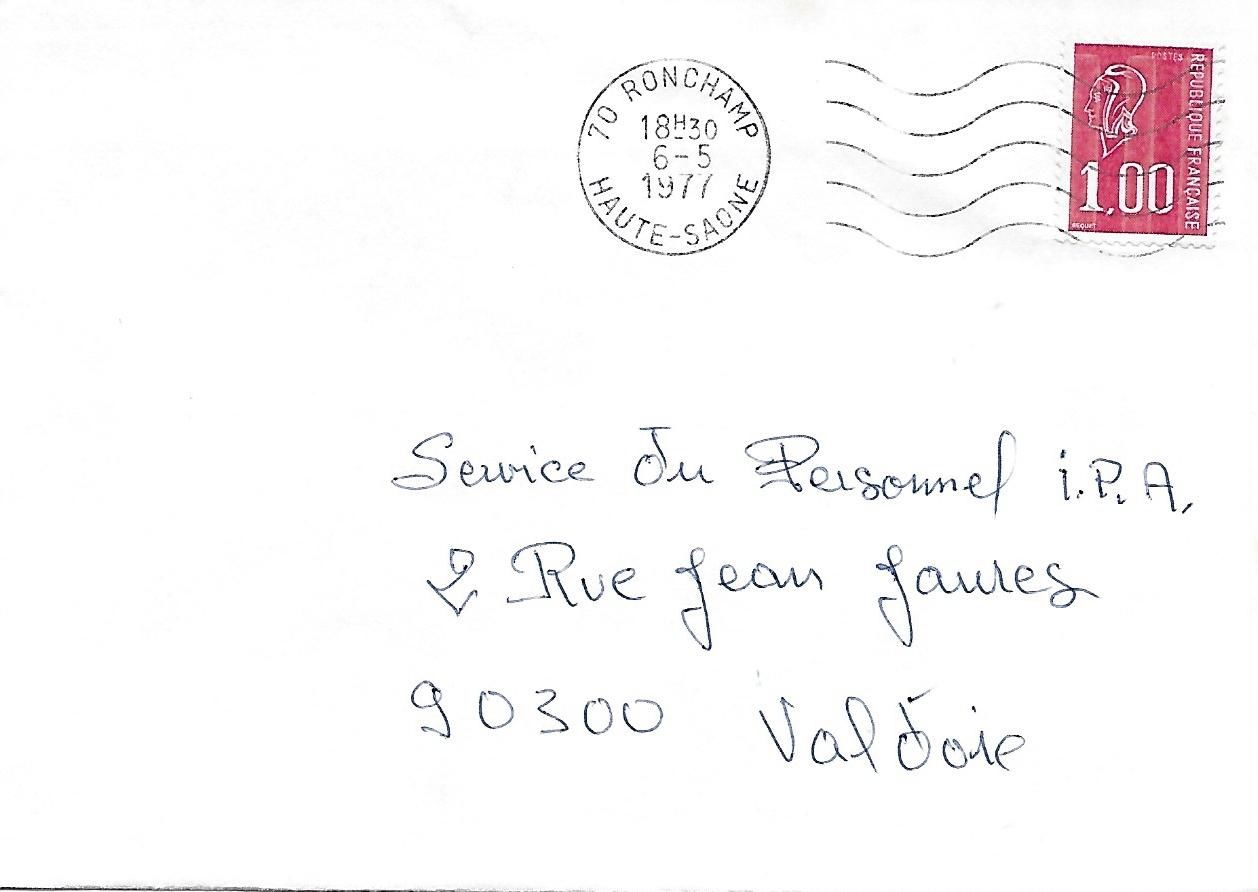 70 RONCHAMP
18H30
6-5
1977
HAUTE-SAONE
POSTES
REPUBLIQUE FRANÇAISE
1,00
BEQUET
Service du Personnel i.P.A.
2 Rue Jean Jaures
90300 Valdoie